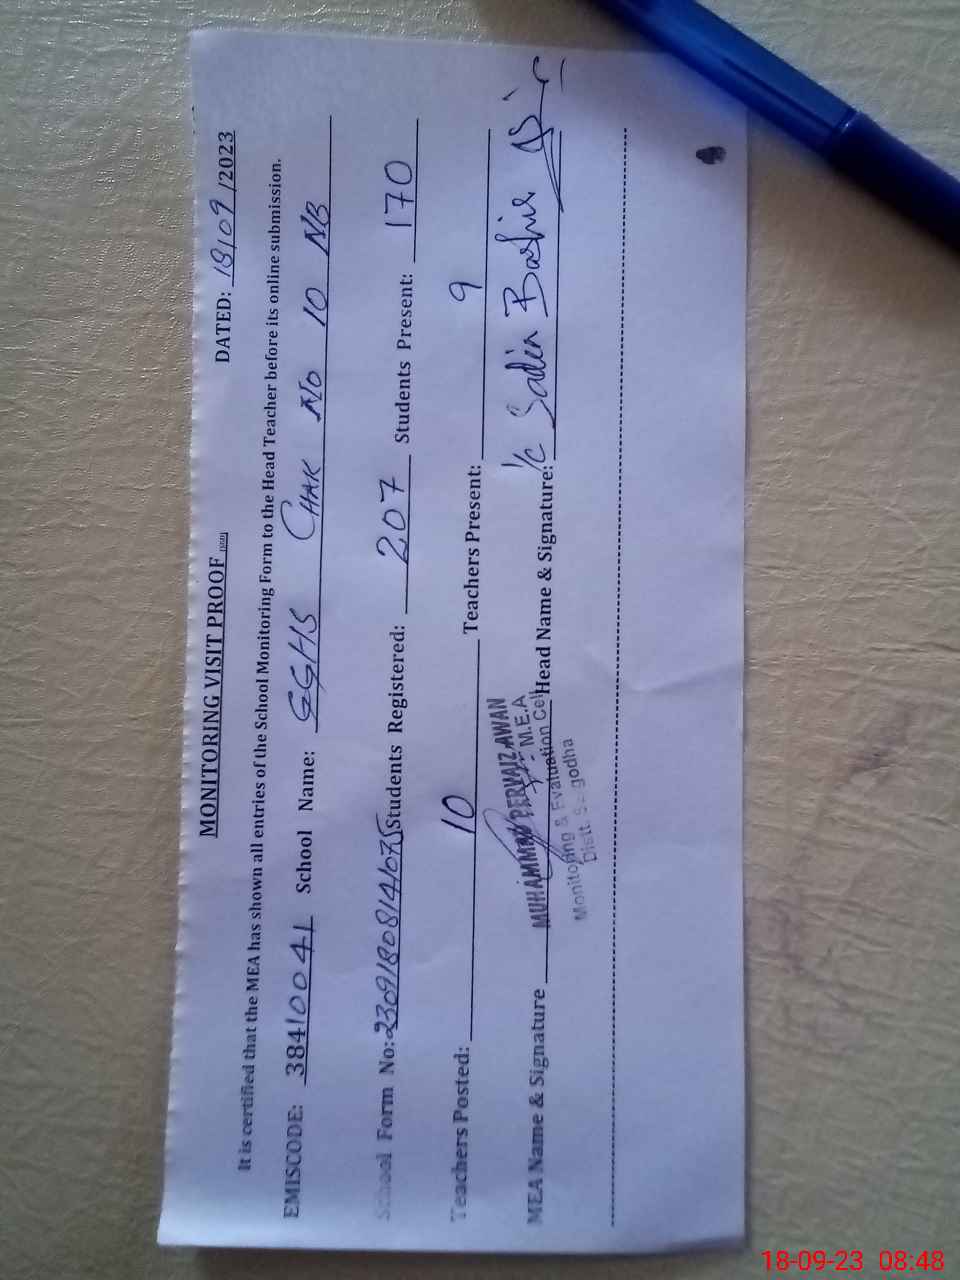 MONITORING VISIT PROOF
DATED: 18/09/2023
It is certified that the MEA has shown all entries of the School Monitoring Form to the Head Teacher before its online submission.
EMISCODE: 38410041 School Name: GGHS CHAK No 10 NB
School Form No: 23091808141075 Students Registered: 207 Students Present: 170
Teachers Posted: 10 Teachers Present: 9
MEA Name & Signature MUHAMMAD PERVAIZ AWAN Head Name & Signature: I/C Sadia Bashir
M.E.A
Monitoring & Evaluation Cell
Distt. Sargodha
18-09-23 08:48